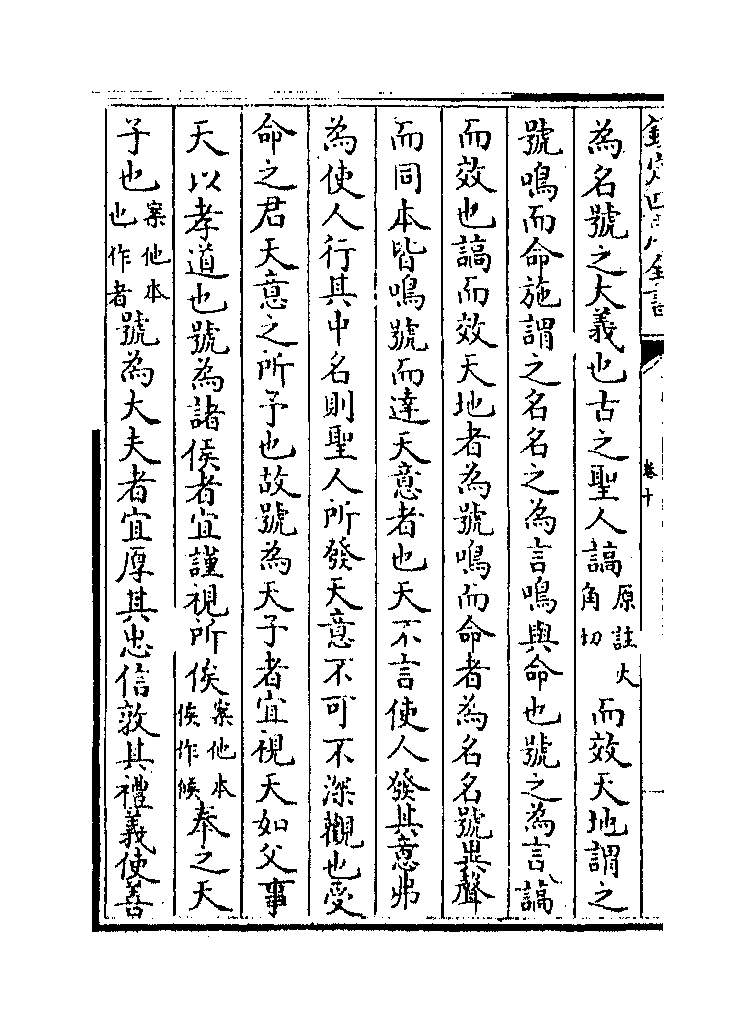 欽定四庫全書
卷十
為名號之大義也古之聖人謞原註火角切而效天地謂之
號鳴而命施謂之名名之為言鳴與命也號之為言謞
而效也謞而效天地者為號鳴而命者為名名號異聲
而同本皆鳴號而達天意者也天不言使人發其意弗
為使人行其中名則聖人所發天意不可不深觀也受
命之君天意之所予也故號為天子者宜視天如父事
天以孝道也號為諸侯者宜謹視所俟案他本俟作候奉之天
子也案他本也作者號為大夫者宜厚其忠信敦其禮義使善